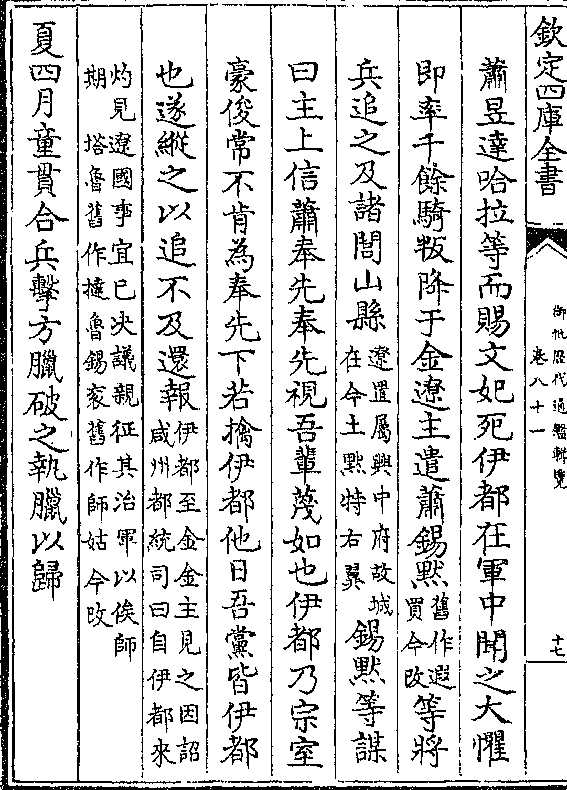 欽定四庫全書
御批歷代通鑑輯覽
卷八十一
十七
蕭昱達哈拉等而賜文妃死伊都在軍中聞之大懼
即率千餘騎叛降于金遼主遣蕭錫默舊作遐
買今改等將
兵追之及諸閭山縣遼置屬興中府故城
在今土默特右翼錫默等謀
曰主上信蕭奉先奉先視吾輩蔑如也伊都乃宗室
豪俊常不肯為奉先下若擒伊都他日吾黨皆伊都
也遂縱之以追不及還報伊都至金金主見之因詔
咸州都統司曰自伊都來
灼見遼國事宜已決議親征其治軍以俟師
期 塔魯舊作撻魯錫袞舊作師姑今改
夏四月童貫合兵擊方臘破之執臘以歸